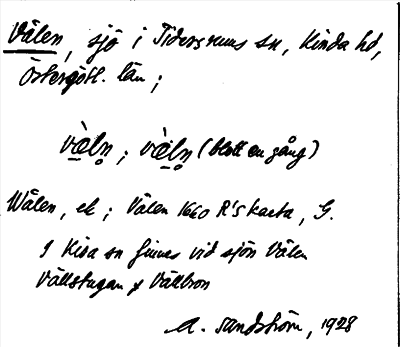 Välen, sjö i Tidersrums sn, Kinda hd,
Östergötl. län;
væ̀ln̥; væ̀ln̥ (blott en gång)
Wälen, ek; Välen 1660 R's karta, G.
I Kisa sn finnes vid sjön Välen
Vällstugan & Vällbron
A. Sandström, 1928